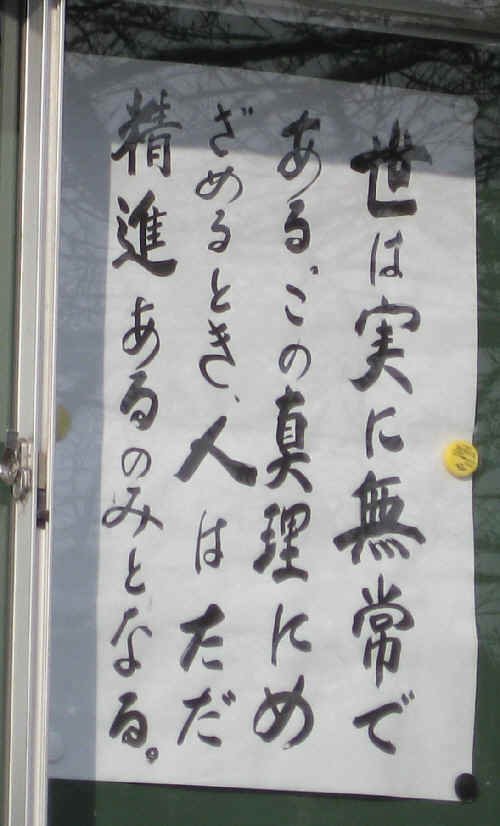 世は実に無常で
ある、この真理にめ
ざめるとき、人はただ
精進あるのみとなる。